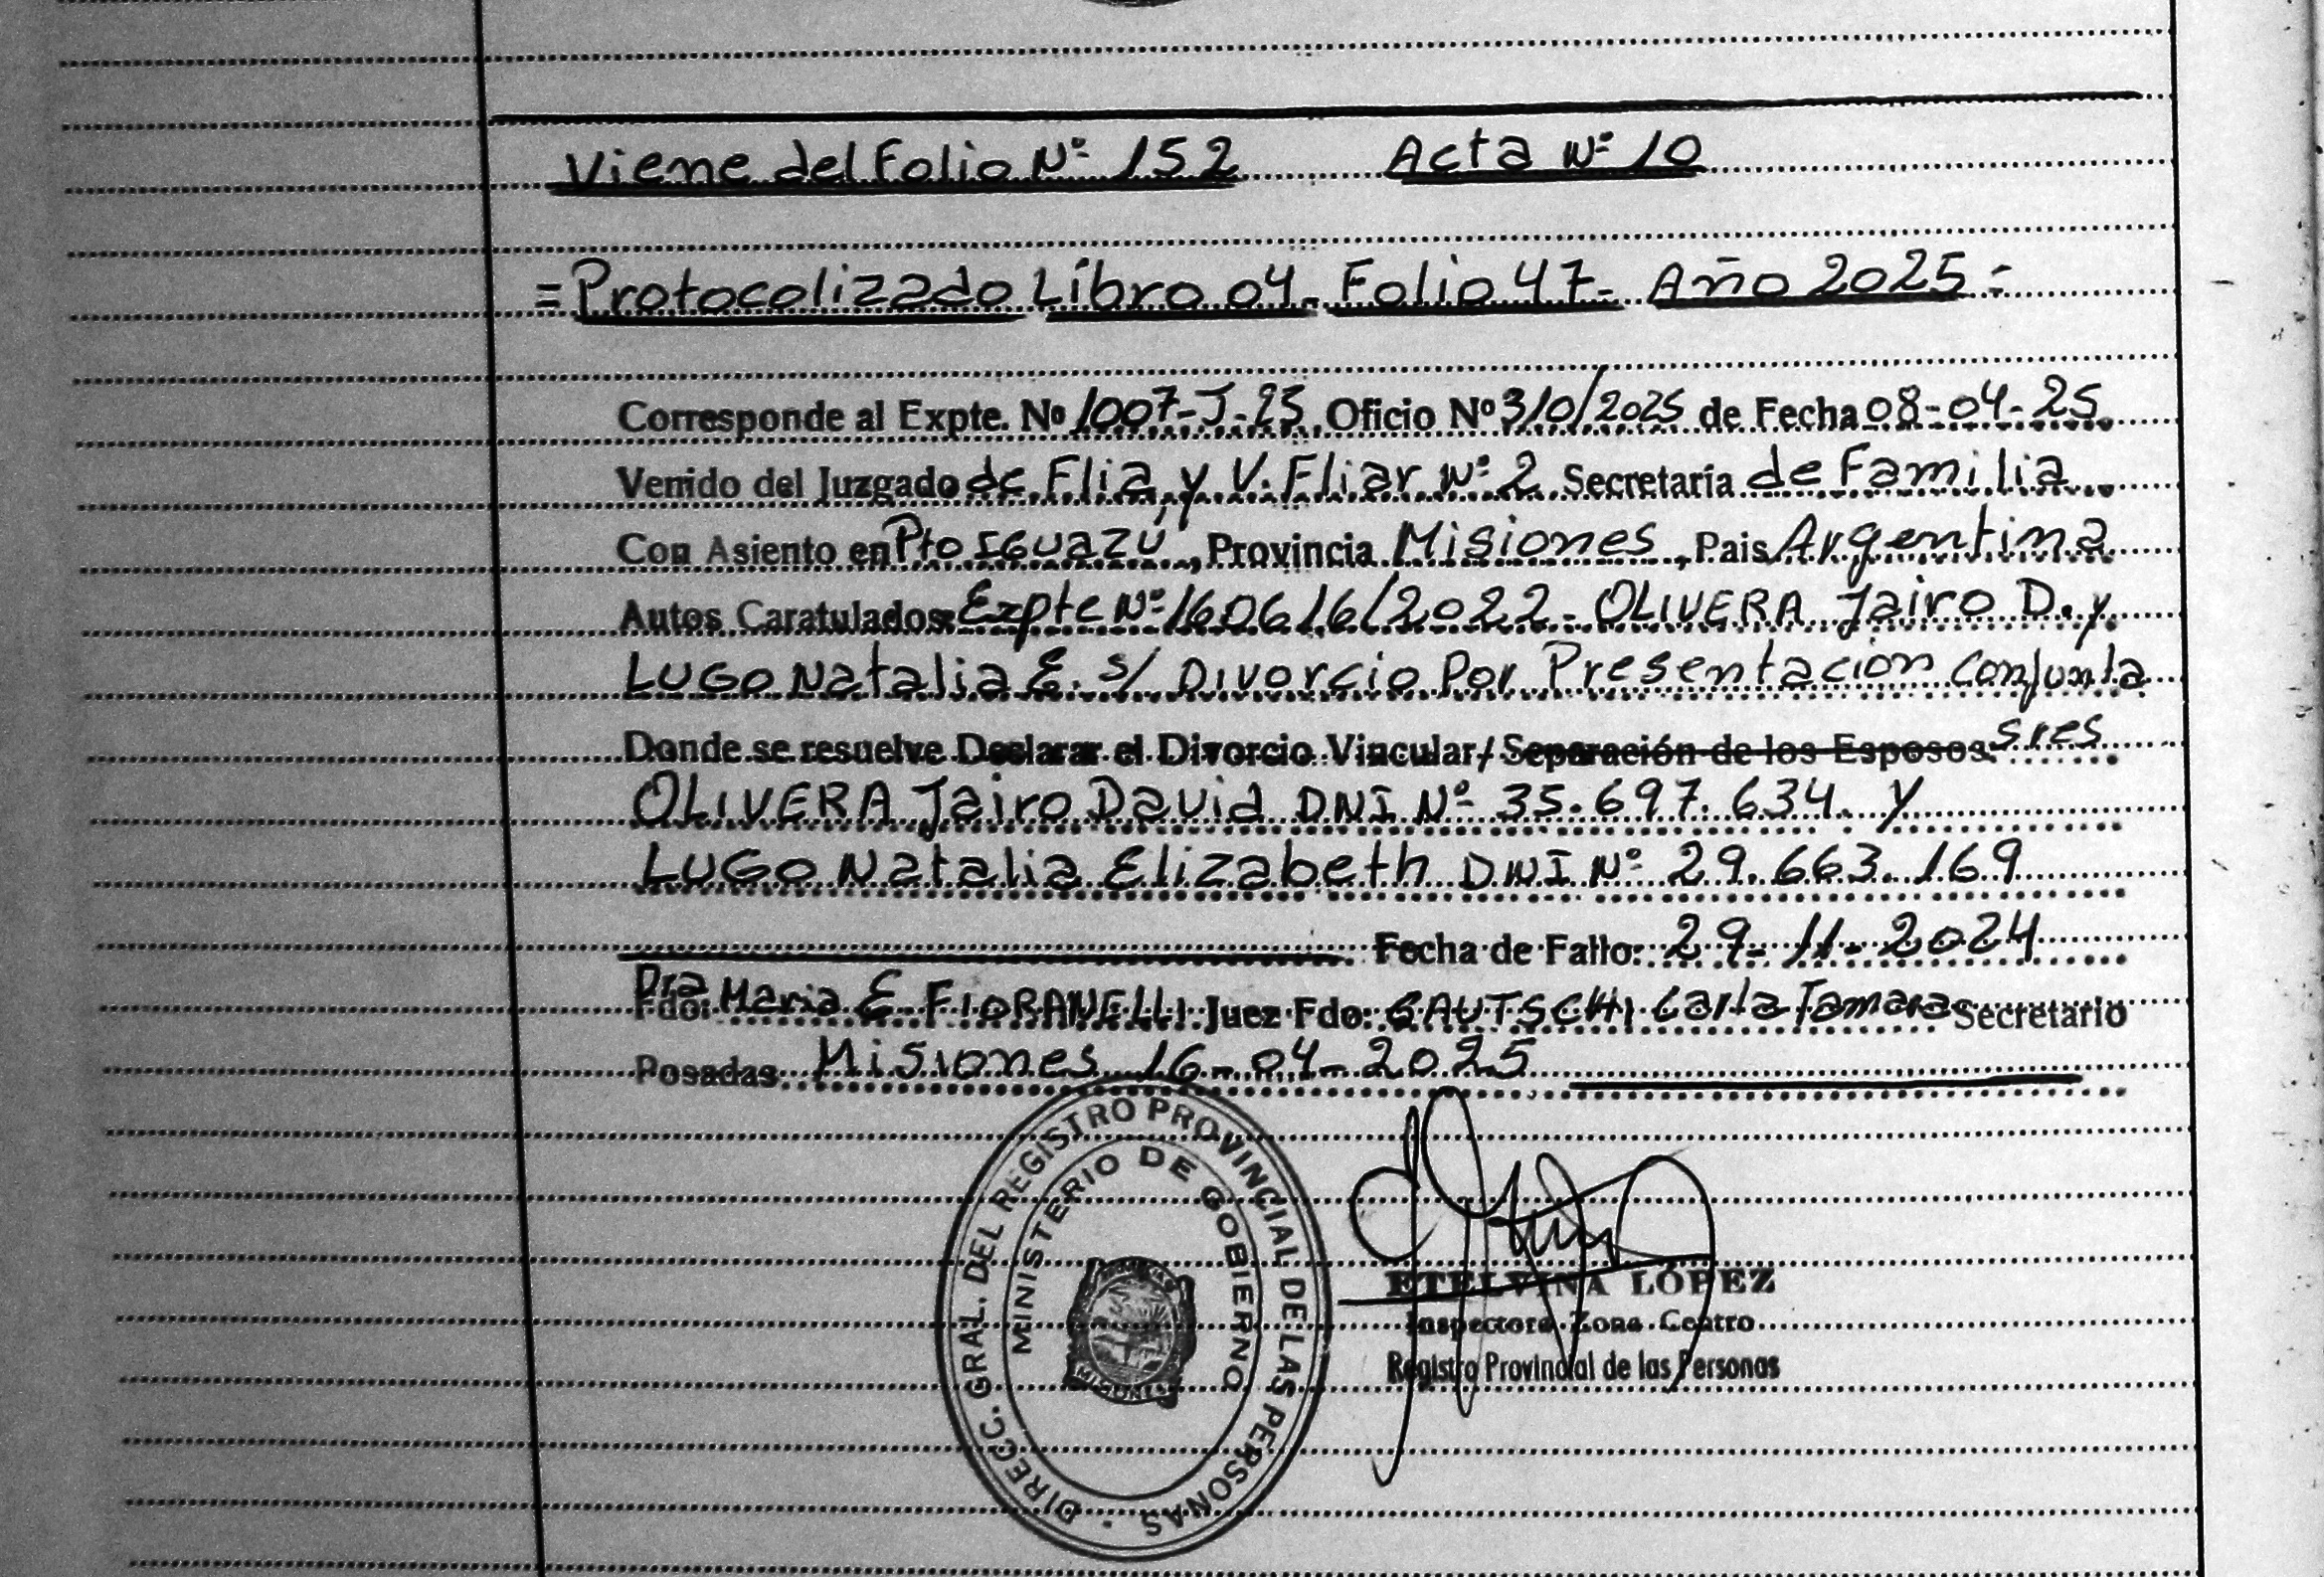 Viene del Folio Nº 152 Acta Nº 10
=Protocolizado Libro 04- Folio 47- Año 2025=
Corresponde al Expte. Nº 1007-J-25, Oficio Nº 310/2025 de Fecha 08-04-25
Venido del Juzgado de Flia, y V. Fliar Nº 2 Secretaría de Familia
Con Asiento en Pto IGUAZU, Provincia Misiones, Pais Argentina
Autos Caratulados: Expte Nº 160616/2022- OLIVERA Jairo D. y
LUGO Natalia E. s/ Divorcio Por Presentacion Conjunta
Donde se resuelve Declarar el Divorcio Vincular/ Separación de los Esposos: sres
OLIVERA Jairo David DNI Nº 35.697.634. y
LUGO Natalia Elizabeth DNI Nº 29.663.169
Fecha de Fallo: 29-11-2024
Dra
Fdo: Maria E. FIORANELLI Juez Fdo: GAUTSCHI Carla Tamara Secretario
Posadas. Misiones 16-04-2025
DIRECC. GRAL. DEL REGISTRO PROVINCIAL DE LAS PERSONAS -
MINISTERIO DE GOBIERNO
MISIONES
ETELVINA LÓPEZ
Inspectora Zona Centro
Registro Provincial de las Personas